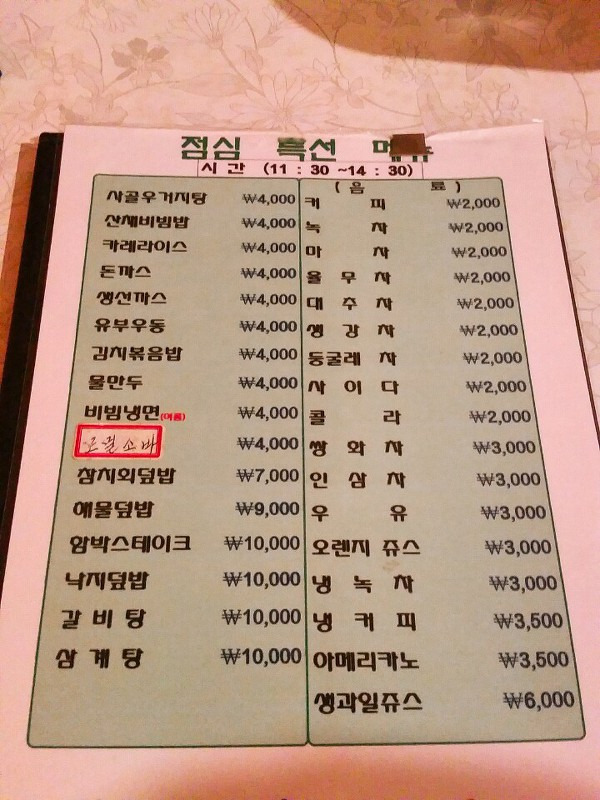 점심 특선 메뉴
시 간 (11 : 30 ~14 : 30)
사골우거지탕 ₩4,000
산채비빔밥 ₩4,000
카레라이스 ₩4,000
돈까스 ₩4,000
생선까스 ₩4,000
유부우동 ₩4,000
김치볶음밥 ₩4,000
물만두 ₩4,000
비빔냉면(여름) ₩4,000
소바 ₩4,000
참치회덮밥 ₩7,000
해물덮밥 ₩9,000
함박스테이크 ₩10,000
낙지덮밥 ₩10,000
갈 비 탕 ₩10,000
삼 계 탕 ₩10,000
( 음 료 )
커 피 ₩2,000
녹 차 ₩2,000
마 차 ₩2,000
율 무 차 ₩2,000
대 추 차 ₩2,000
생 강 차 ₩2,000
둥굴레 차 ₩2,000
사 이 다 ₩2,000
콜 라 ₩2,000
쌍 화 차 ₩3,000
인 삼 차 ₩3,000
우 유 ₩3,000
오렌지 쥬스 ₩3,000
냉 녹 차 ₩3,000
냉 커 피 ₩3,500
아메리카노 ₩3,500
생과일쥬스 ₩6,000